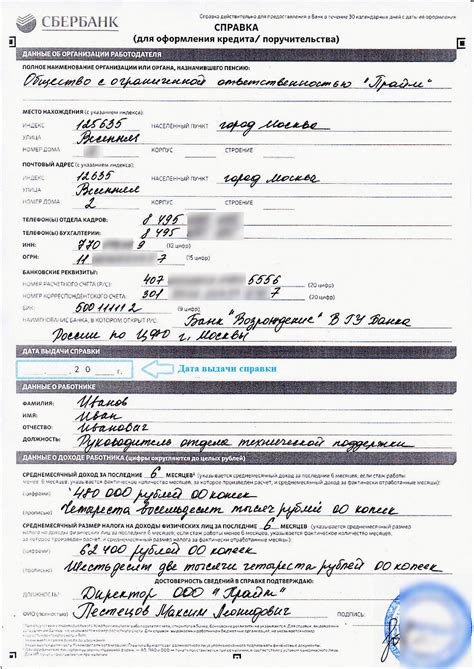 СБЕРБАНК
Справка действительно для предоставления в Банк в течение 30 календарных дней с даты её оформления
СПРАВКА
(для оформления кредита/ поручительства)
ДАННЫЕ ОБ ОРГАНИЗАЦИИ РАБОТОДАТЕЛЯ
ПОЛНОЕ НАИМЕНОВАНИЕ ОРГАНИЗАЦИИ ИЛИ ОРГАНА, НАЗНАЧИВШЕГО ПЕНСИЮ:
Общество с ограниченной ответственностью "Прайм"
МЕСТО НАХОЖДЕНИЯ (с указанием индекса):
ИНДЕКС 125635 НАСЕЛЕННЫЙ ПУНКТ город Москва
УЛИЦА Весенняя
НОМЕР ДОМА КОРПУС СТРОЕНИЕ
ПОЧТОВЫЙ АДРЕС (с указанием индекса):
ИНДЕКС 12635 НАСЕЛЕННЫЙ ПУНКТ город Москва
УЛИЦА Весенняя
НОМЕР ДОМА 2 КОРПУС СТРОЕНИЕ
ТЕЛЕФОН(Ы) ОТДЕЛА КАДРОВ: 8 495
ТЕЛЕФОН(Ы) БУХГАЛТЕРИИ: 8 495
ИНН: 770 9 (10 цифр)
ОГРН: 11 7 (15 цифр)
БАНКОВСКИЕ РЕКВИЗИТЫ:
НОМЕР РАСЧЕТНОГО СЧЕТА (Р/С): 407 5556 (20 цифр)
НОМЕР КОРРЕСПОНДЕНТСКОГО СЧЕТА 301 7 (20 цифр)
БИК: 500111112 (9 цифр)
НАИМЕНОВАНИЕ БАНКА, В КОТОРОМ ОТКРЫТ Р/С: Банк "Возрождение" В ГУ Банка
России по ЦФО г. Москвы
ДАТА ВЫДАЧИ СПРАВКИ
20 г. Дата выдачи справки
ДАННЫЕ О РАБОТНИКЕ
ФАМИЛИЯ: Иванов
ИМЯ: Иван
ОТЧЕСТВО: Иванович
ДОЛЖНОСТЬ: Руководитель отдела технической поддержки
ДАННЫЕ О ДОХОДЕ РАБОТНИКА (цифры округляются до целых рублей)
СРЕДНЕМЕСЯЧНЫЙ ДОХОД ЗА ПОСЛЕДНИЕ 6 МЕСЯЦЕВ
(цифрами) 480 000 рублей 00 копеек
(прописью) Четыреста восемьдесят тысяч рублей 00 копеек
СРЕДНЕМЕСЯЧНЫЙ РАЗМЕР НАЛОГА НА ДОХОДЫ ФИЗИЧЕСКИХ ЛИЦ ЗА ПОСЛЕДНИЕ 6 МЕСЯЦЕВ
(цифрами) 62 400 рублей 00 копеек
(прописью) Шестьдесят две тысячи четыреста рублей 00 копеек
ДОСТОВЕРНОСТЬ СВЕДЕНИЙ В СПРАВКЕ ПОДТВЕРЖДАЮ:
ДОЛЖНОСТЬ: Директор ООО "Прайм"
ФИО (полностью) Пестецов Максим Леонидович ПОДПИСЬ